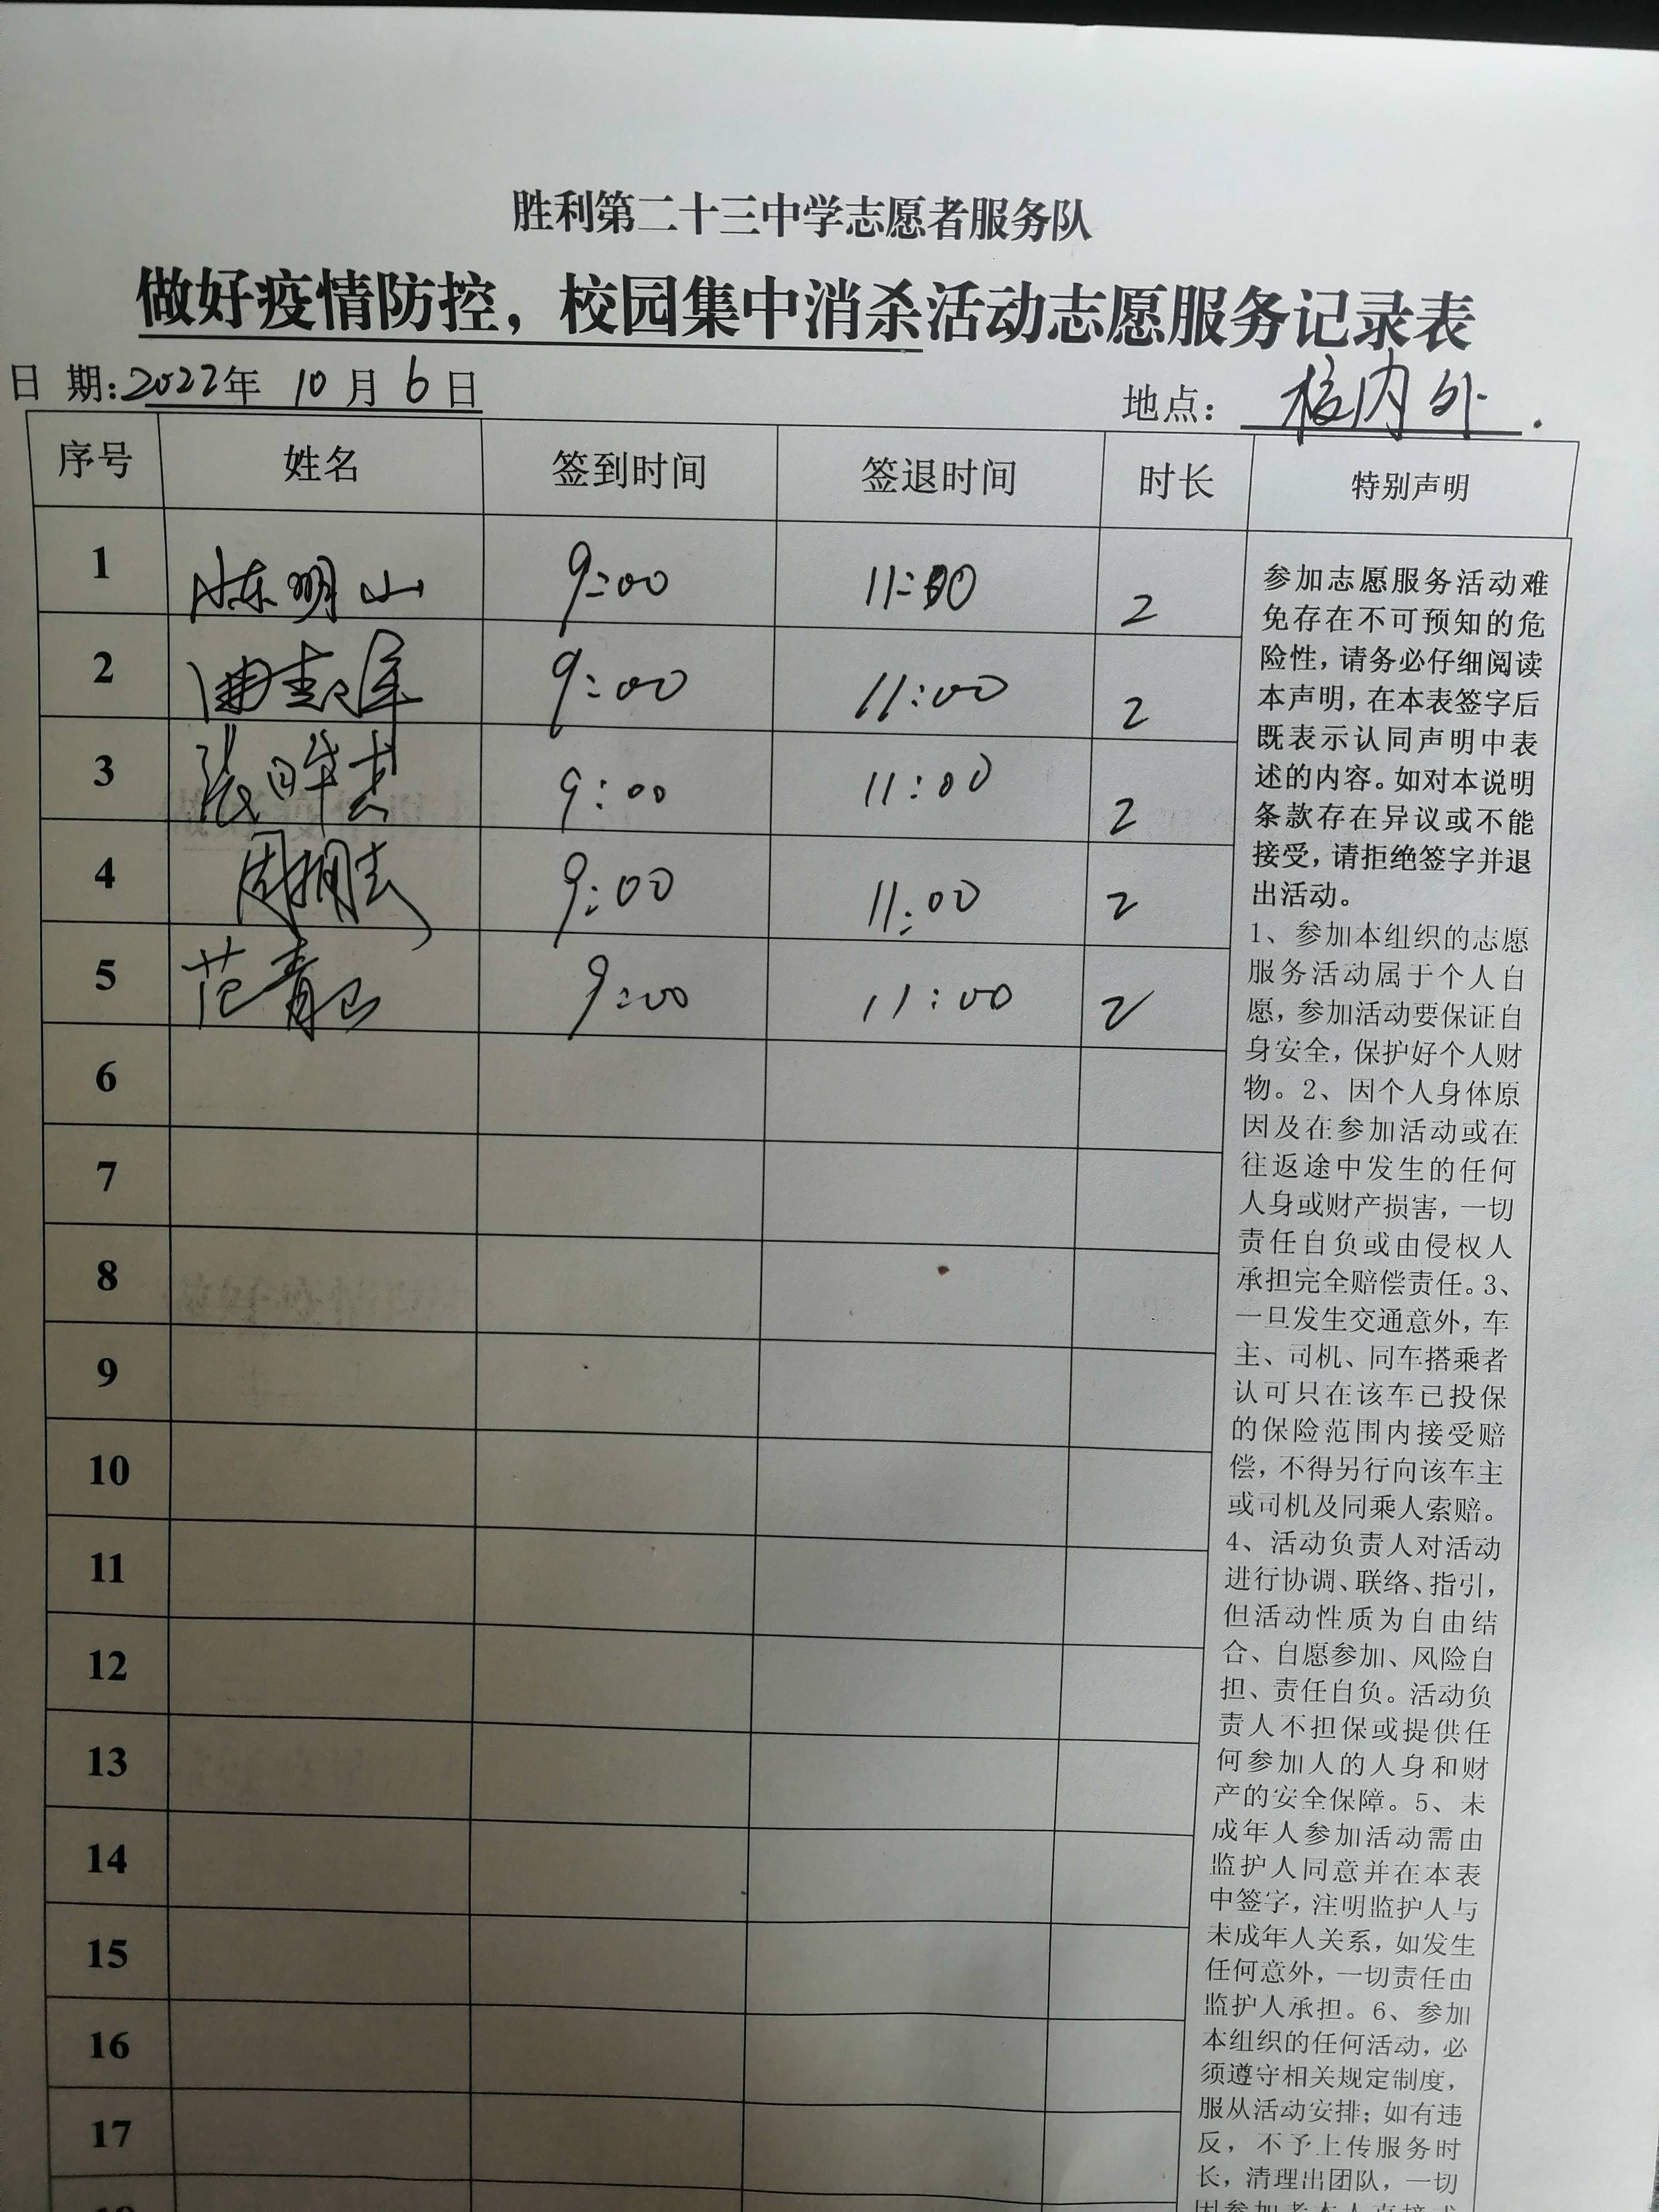 胜利第二十三中学志愿者服务队
做好疫情防控，校园集中消杀活动志愿服务记录表
日 期:2022年 10 月 6 日
地点： 校内外.
序号 姓名 签到时间 签退时间 时长 特别声明
1 陈明山 9:00 11:00 2
2 9:00 11:00 2
3 9:00 11:00 2
4 9:00 11:00 2
5 范青 9:00 11:00 2
6
7
8
9
10
11
12
13
14
15
16
17
18
参加志愿服务活动难
免存在不可预知的危
险性，请务必仔细阅读
本声明，在本表签字后
既表示认同声明中表
述的内容。如对本说明
条款存在异议或不能
接受，请拒绝签字并退
出活动。
1、参加本组织的志愿
服务活动属于个人自
愿，参加活动要保证自
身安全，保护好个人财
物。2、因个人身体原
因及在参加活动或在
往返途中发生的任何
人身或财产损害，一切
责任自负或由侵权人
承担完全赔偿责任。3、
一旦发生交通意外，车
主、司机、同车搭乘者
认可只在该车已投保
的保险范围内接受赔
偿，不得另行向该车主
或司机及同乘人索赔。
4、活动负责人对活动
进行协调、联络、指引，
但活动性质为自由结
合、自愿参加、风险自
担、责任自负。活动负
责人不担保或提供任
何参加人的人身和财
产的安全保障。5、未
成年人参加活动需由
监护人同意并在本表
中签字，注明监护人与
未成年人关系，如发生
任何意外，一切责任由
监护人承担。6、参加
本组织的任何活动，必
须遵守相关规定制度，
服从活动安排；如有违
反，不予上传服务时
长，清理出团队，一切
因参加者本人直接或